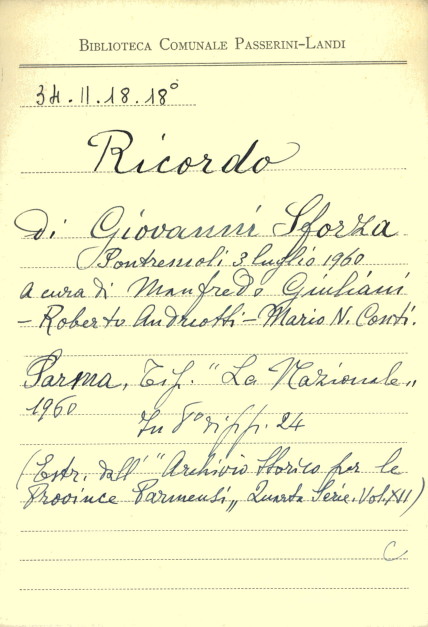 BIBLIOTECA COMUNALE PASSERINI-LANDI
34.II.18.18°
Ricordo
di Giovanni Sforza
Pontremoli 3 luglio 1960
a cura di Manfredo Giuliani
- Roberto Andreotti - Mario N. Conti.
Parma, Tip. "La Nazionale„
1960
In 8° di pp. 24
(Estr. dall' "Archivio Storico per le
Province Parmensi„ Quarta Serie. Vol. XII)
C